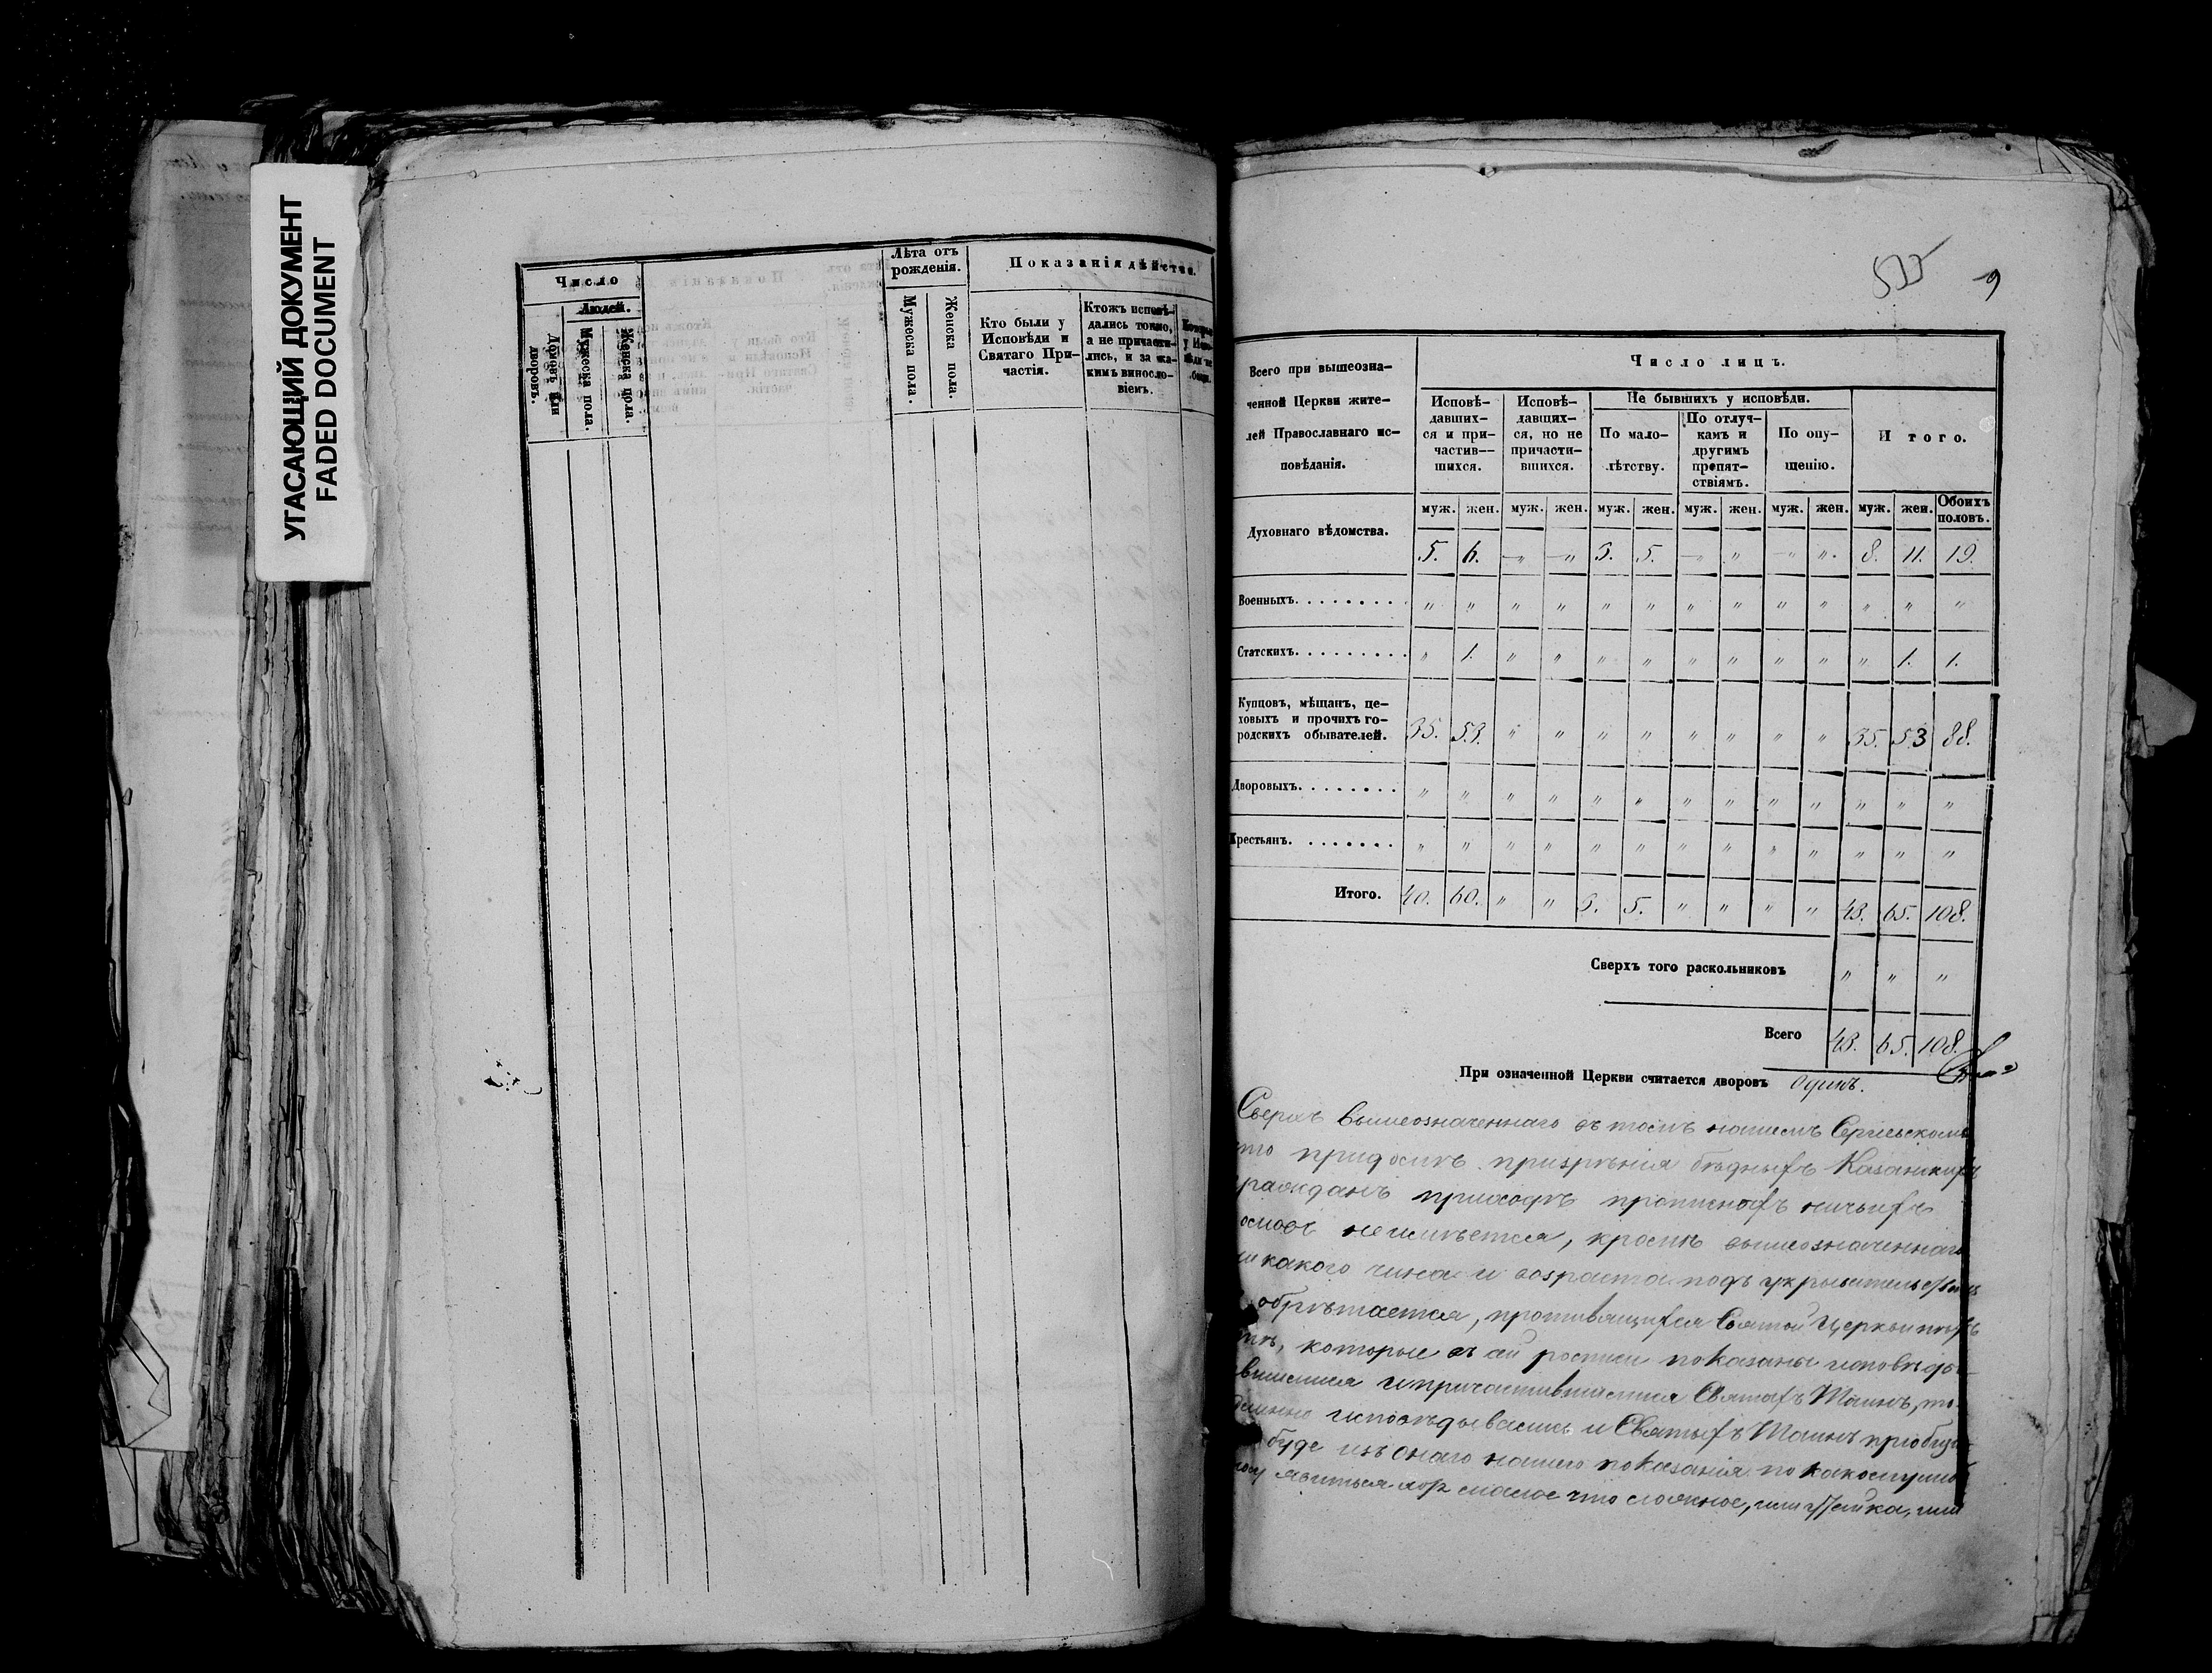 УГАСАЮЩИЙ ДОКУМЕНТ
FADED DOCUMENT
Число
Людей.
Дворовъ или дворовъ.
Мужеска пола.
Женска пола.
Лѣта отъ рожденія.
Мужеска пола.
Женска пола.
Показанія дѣйства.
Кто были у
Исповѣди и
Святаго При-
частія.
Ктожъ исповѣ-
дались токмо,
а не причасти-
лись, и за ка-
кимъ виносло-
віемъ.
9
Всего при вышеозна-
ченной Церкви жите-
лей Православнаго ис-
повѣданія.
Число лицъ.
Исповѣ-
давших-
ся и при-
частив-
шихся.
Исповѣ-
давших-
ся, но не
причасти-
вшихся.
Не бывшихъ у исповѣди.
По мало-
лѣтству.
По отлуч-
камъ и
другимъ
препят-
ствіямъ.
По опу-
щенію.
И того.
муж. жен. муж. жен. муж. жен. муж. жен. муж. жен. муж. жен. Обоихъ половъ.
Духовнаго вѣдомства. 5. 6. „ „ 3. 5. „ „ „ „ 8. 11. 19.
Военныхъ. „ „ „ „ „ „ „ „ „ „ „ „ „
Статскихъ. „ 1. „ „ „ „ „ „ „ „ „ 1. 1.
Купцовъ, мѣщанъ, це-
ховыхъ и прочихъ го-
родскихъ обывателей. 35. 53. „ „ „ „ „ „ „ „ 35. 53 88.
Дворовыхъ. „ „ „ „ „ „ „ „ „ „ „ „ „
Крестьянъ. „ „ „ „ „ „ „ „ „ „ „ „ „
Итого. 40. 60. „ „ 3. 5. „ „ „ „ 43. 65. 108.
Сверхъ того раскольниковъ „ „ „
Всего 43. 65. 108.
При означенной Церкви считается дворовъ Одинъ.
Сверхъ вышеозначеннаго въ томъ нашемъ Сергіевскомъ
призрѣнія бѣдныхъ Казанскихъ
гражданъ приходѣ прописныхъ ничьихъ
домовъ неимѣется, кромѣ вышеозначеннаго
никакого чина и возраста подъ укрывательствомъ
обрѣтается, противящихся Святой Церкви
которые въ сей росписи показаны исповѣды-
вшимися и причастившимися Святыхъ Таинъ,
исповѣдывались и Святыхъ Таинъ приобщ
буде изъ онаго нашего показанія по
явиться хоть малое что ложное, или утайка, или